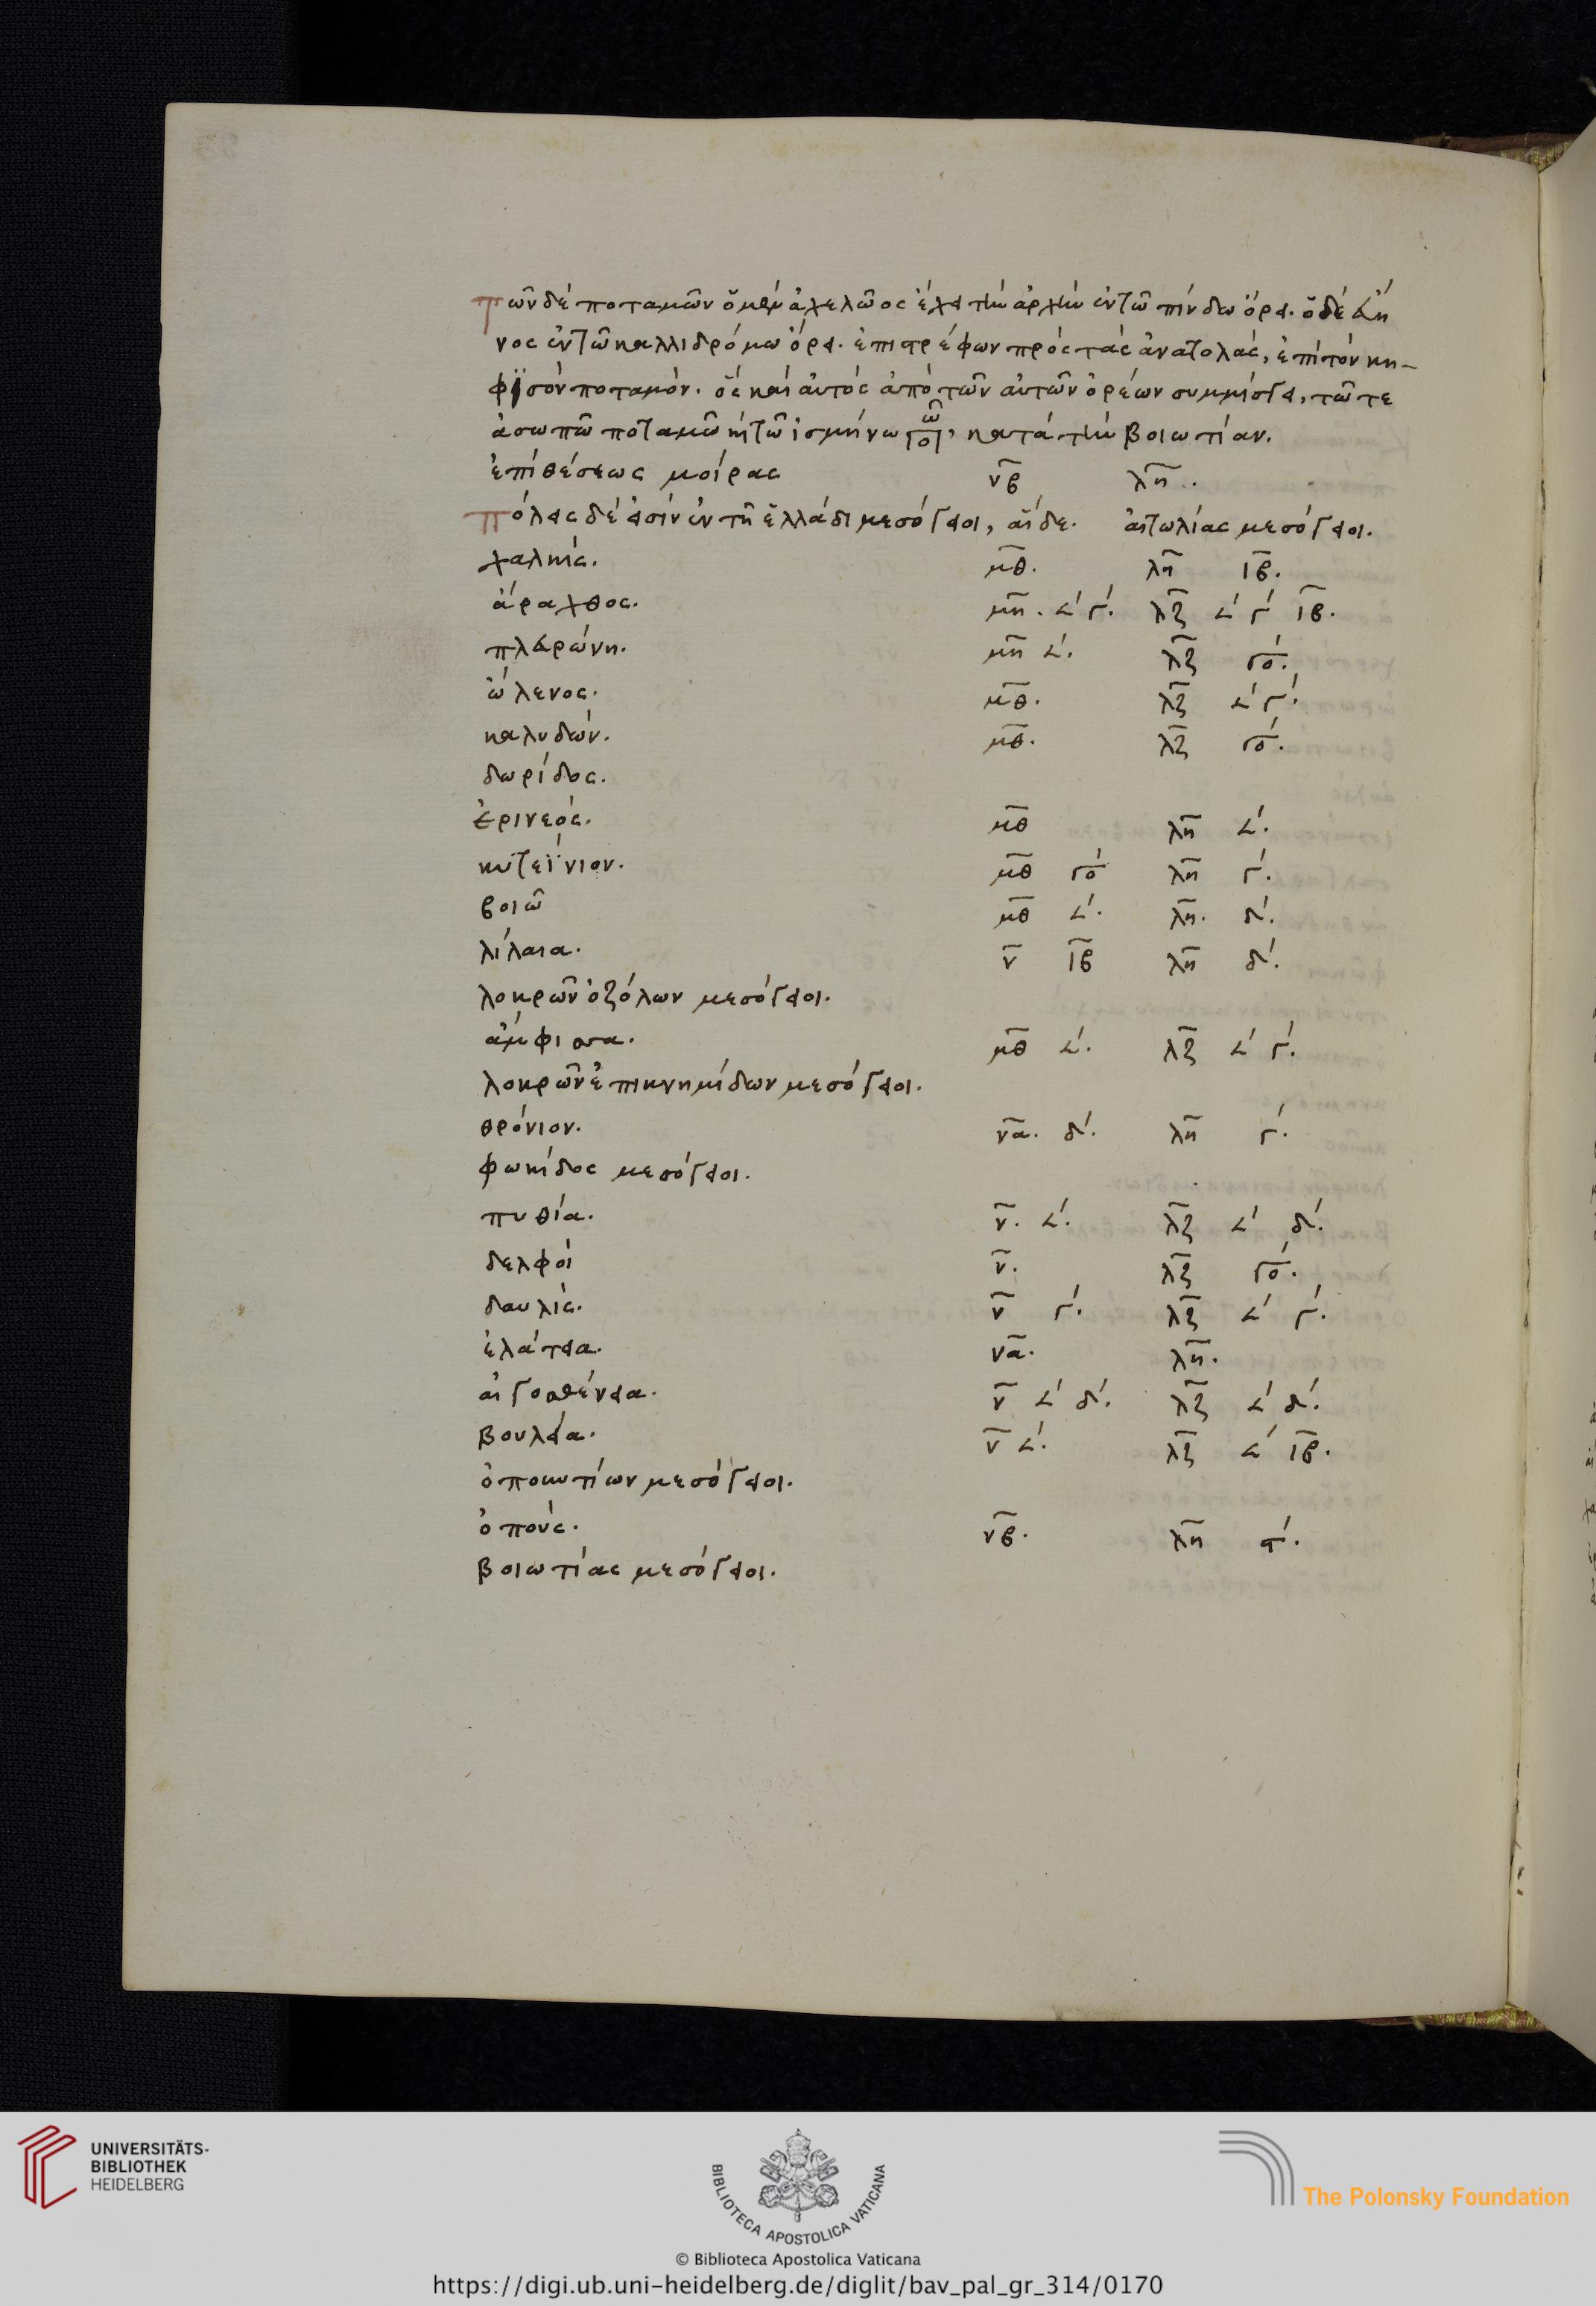 τῶν δὲ ποταμῶν ὁ μὲν ἀχελῶος ἔχει τὴν ἀρχὴν ἐν τῶ πίνδω ὄρει. ὁ δὲ εὔη
νος ἐν τῶ καλλιδρόμω ὄρει. ἐπιστρέφων πρὸς τὰς ἀνατολὰς, ἐπὶ τὸν κη-
φϊσὸν ποταμόν. ὃς καὶ αὐτὸς ἀπὸ τῶν αὐτῶν ὀρέων συμμίσγει, τῶ τε
ἀσωπῶ ποταμῶ καὶ τῶ ἰσμήνω, κατὰ τὴν βοιωτίαν.
ἐπὶ θέσεως μοίρας ν̅β̅ λ̅η̅.
πόλεις δέ εἰσὶν ἐν τῆ ἑλλάδι μεσόγειοι, αἵδε. αἰτωλίας μεσόγειοι.
χαλκίς. μ̅θ̅. λ̅η̅ ι̅β̅.
ἄραχθος. μ̅η̅. 𐅵ʹ γʹ. λ̅ζ̅ 𐅵ʹ γʹ ι̅β̅.
πλευρώνη. μ̅η̅ 𐅵ʹ. λ̅ζ̅ γοʹ.
ὤλενος. μ̅θ̅. λ̅ζ̅ 𐅵ʹ γʹ.
καλυδών. μ̅θ̅. λ̅ζ̅ γοʹ.
δωρίδος.
ἐρινεός. μ̅θ̅ λ̅η̅ 𐅵ʹ.
κυτεΐνιον. μ̅θ̅ γοʹ λ̅η̅ γʹ.
βοιῶ μ̅θ̅ 𐅵ʹ. λ̅η̅. δʹ.
λίλαια. ν̅ ι̅β̅ λ̅η̅ δʹ.
λοκρῶν ὀζόλων μεσόγειοι.
ἄμφισσα. μ̅θ̅ 𐅵ʹ. λ̅ζ̅ 𐅵ʹ γʹ.
λοκρῶν ἐπικνημίδων μεσόγειοι.
θρόνιον. ν̅α̅. δʹ. λ̅η̅ γʹ.
φωκίδος μεσόγειοι.
πυθία. ν̅. 𐅵ʹ. λ̅ζ̅ 𐅵ʹ δʹ.
δελφοί ν̅. λ̅ζ̅ γοʹ.
δαυλίς. ν̅ γʹ. λ̅ζ̅ 𐅵ʹ γʹ.
ἐλάτεια. ν̅α̅. λ̅η̅.
αἰγοσθένεια. ν̅ 𐅵ʹ δʹ. λ̅ζ̅ 𐅵ʹ δʹ.
βουλεία. ν̅ 𐅵ʹ. λ̅ζ̅ 𐅵ʹ ι̅β̅.
ὀποιωτίων μεσόγειοι.
ὀπούς. ν̅β̅. λ̅η̅ ϛʹ.
βοιωτίας μεσόγειοι.
UNIVERSITÄTS-
BIBLIOTHEK
HEIDELBERG
BIBLIOTECA APOSTOLICA VATICANA
The Polonsky Foundation
© Biblioteca Apostolica Vaticana
https://digi.ub.uni-heidelberg.de/diglit/bav_pal_gr_314/0170